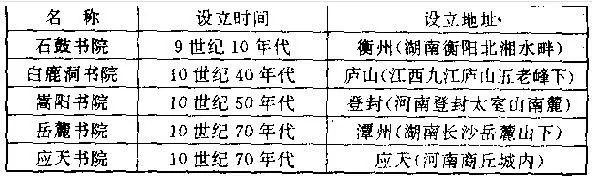 名 称 设立时间 设立地址
石鼓书院 9世纪10年代 衡州(湖南衡阳北湘水畔)
白鹿洞书院 10世纪40年代 庐山(江西九江庐山五老峰下)
嵩阳书院 10世纪50年代 登封(河南登封太室山南麓)
岳麓书院 10世纪70年代 潭州(湖南长沙岳麓山下)
应天书院 10世纪70年代 应天(河南商丘城内)